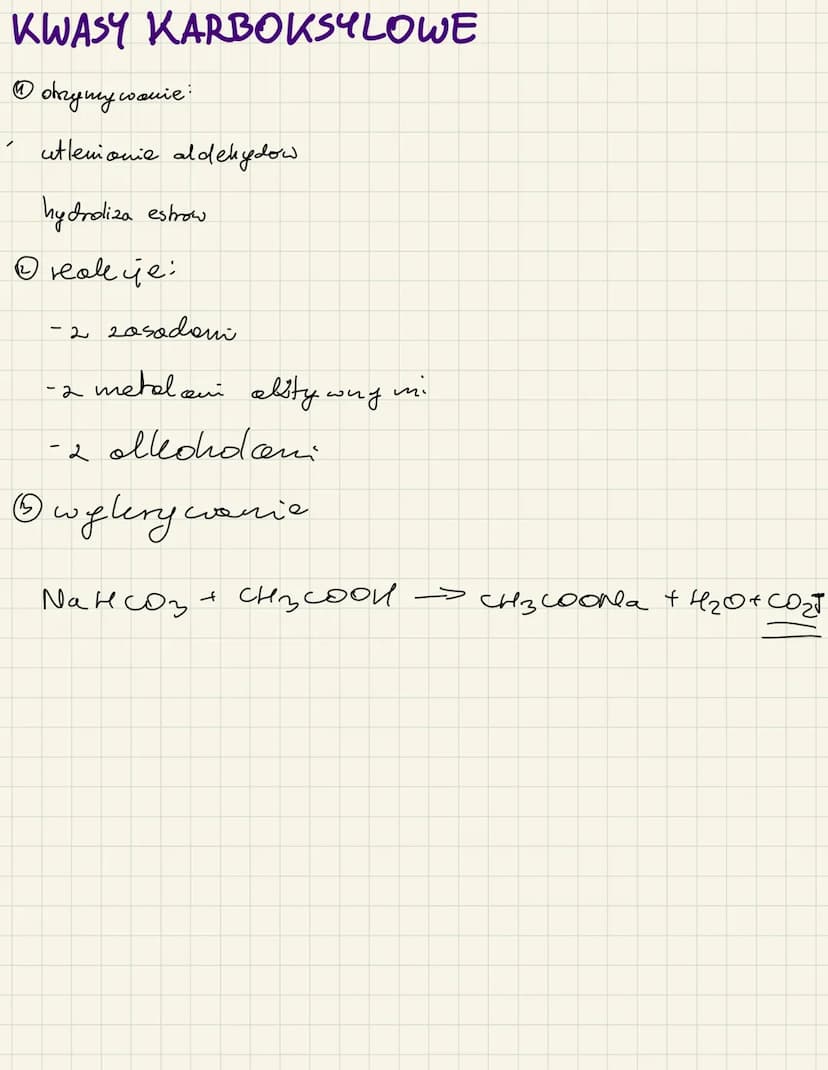 KWASY KARBOKSYLOWE
① otrzymywanie:
utlenianie aldehydów
hydroliza estrów
② reakcje:
- z zasadami
- z metalami aktywnymi
- z alkoholami
③ wykrywanie
NaHCO₃ + CH₃COOH → CH₃COONa + H₂O + CO₂↑